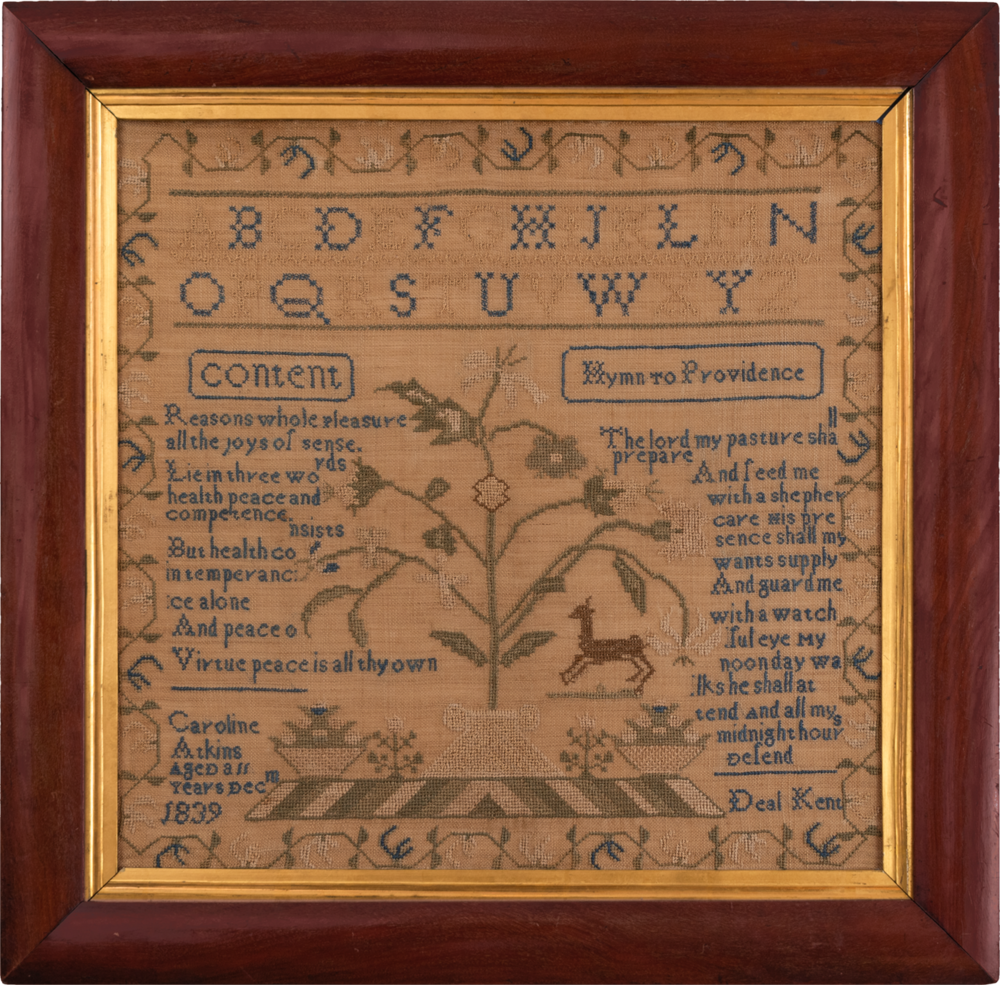 A B C D E F G H I J K L M N
O P Q R S T U V W X Y Z
content
Reasons whole pleasure
all the joys of sense.
Lie in three words
health peace and
competence.
But health consists
in temperanc
ce alone
And peace o
Virtue peace is all thy own
Caroline
Atkins
AGED 11
Years Decm
1839
Hymn to Providence
The lord my pasture shall
prepare
And feed me
with a shepher
care His pre
sence shall my
wants supply
And guard me
with a watch
ful eye My
noonday wa
lks he shall at
tend And all mys
midnight hour
Defend
Deal Kent